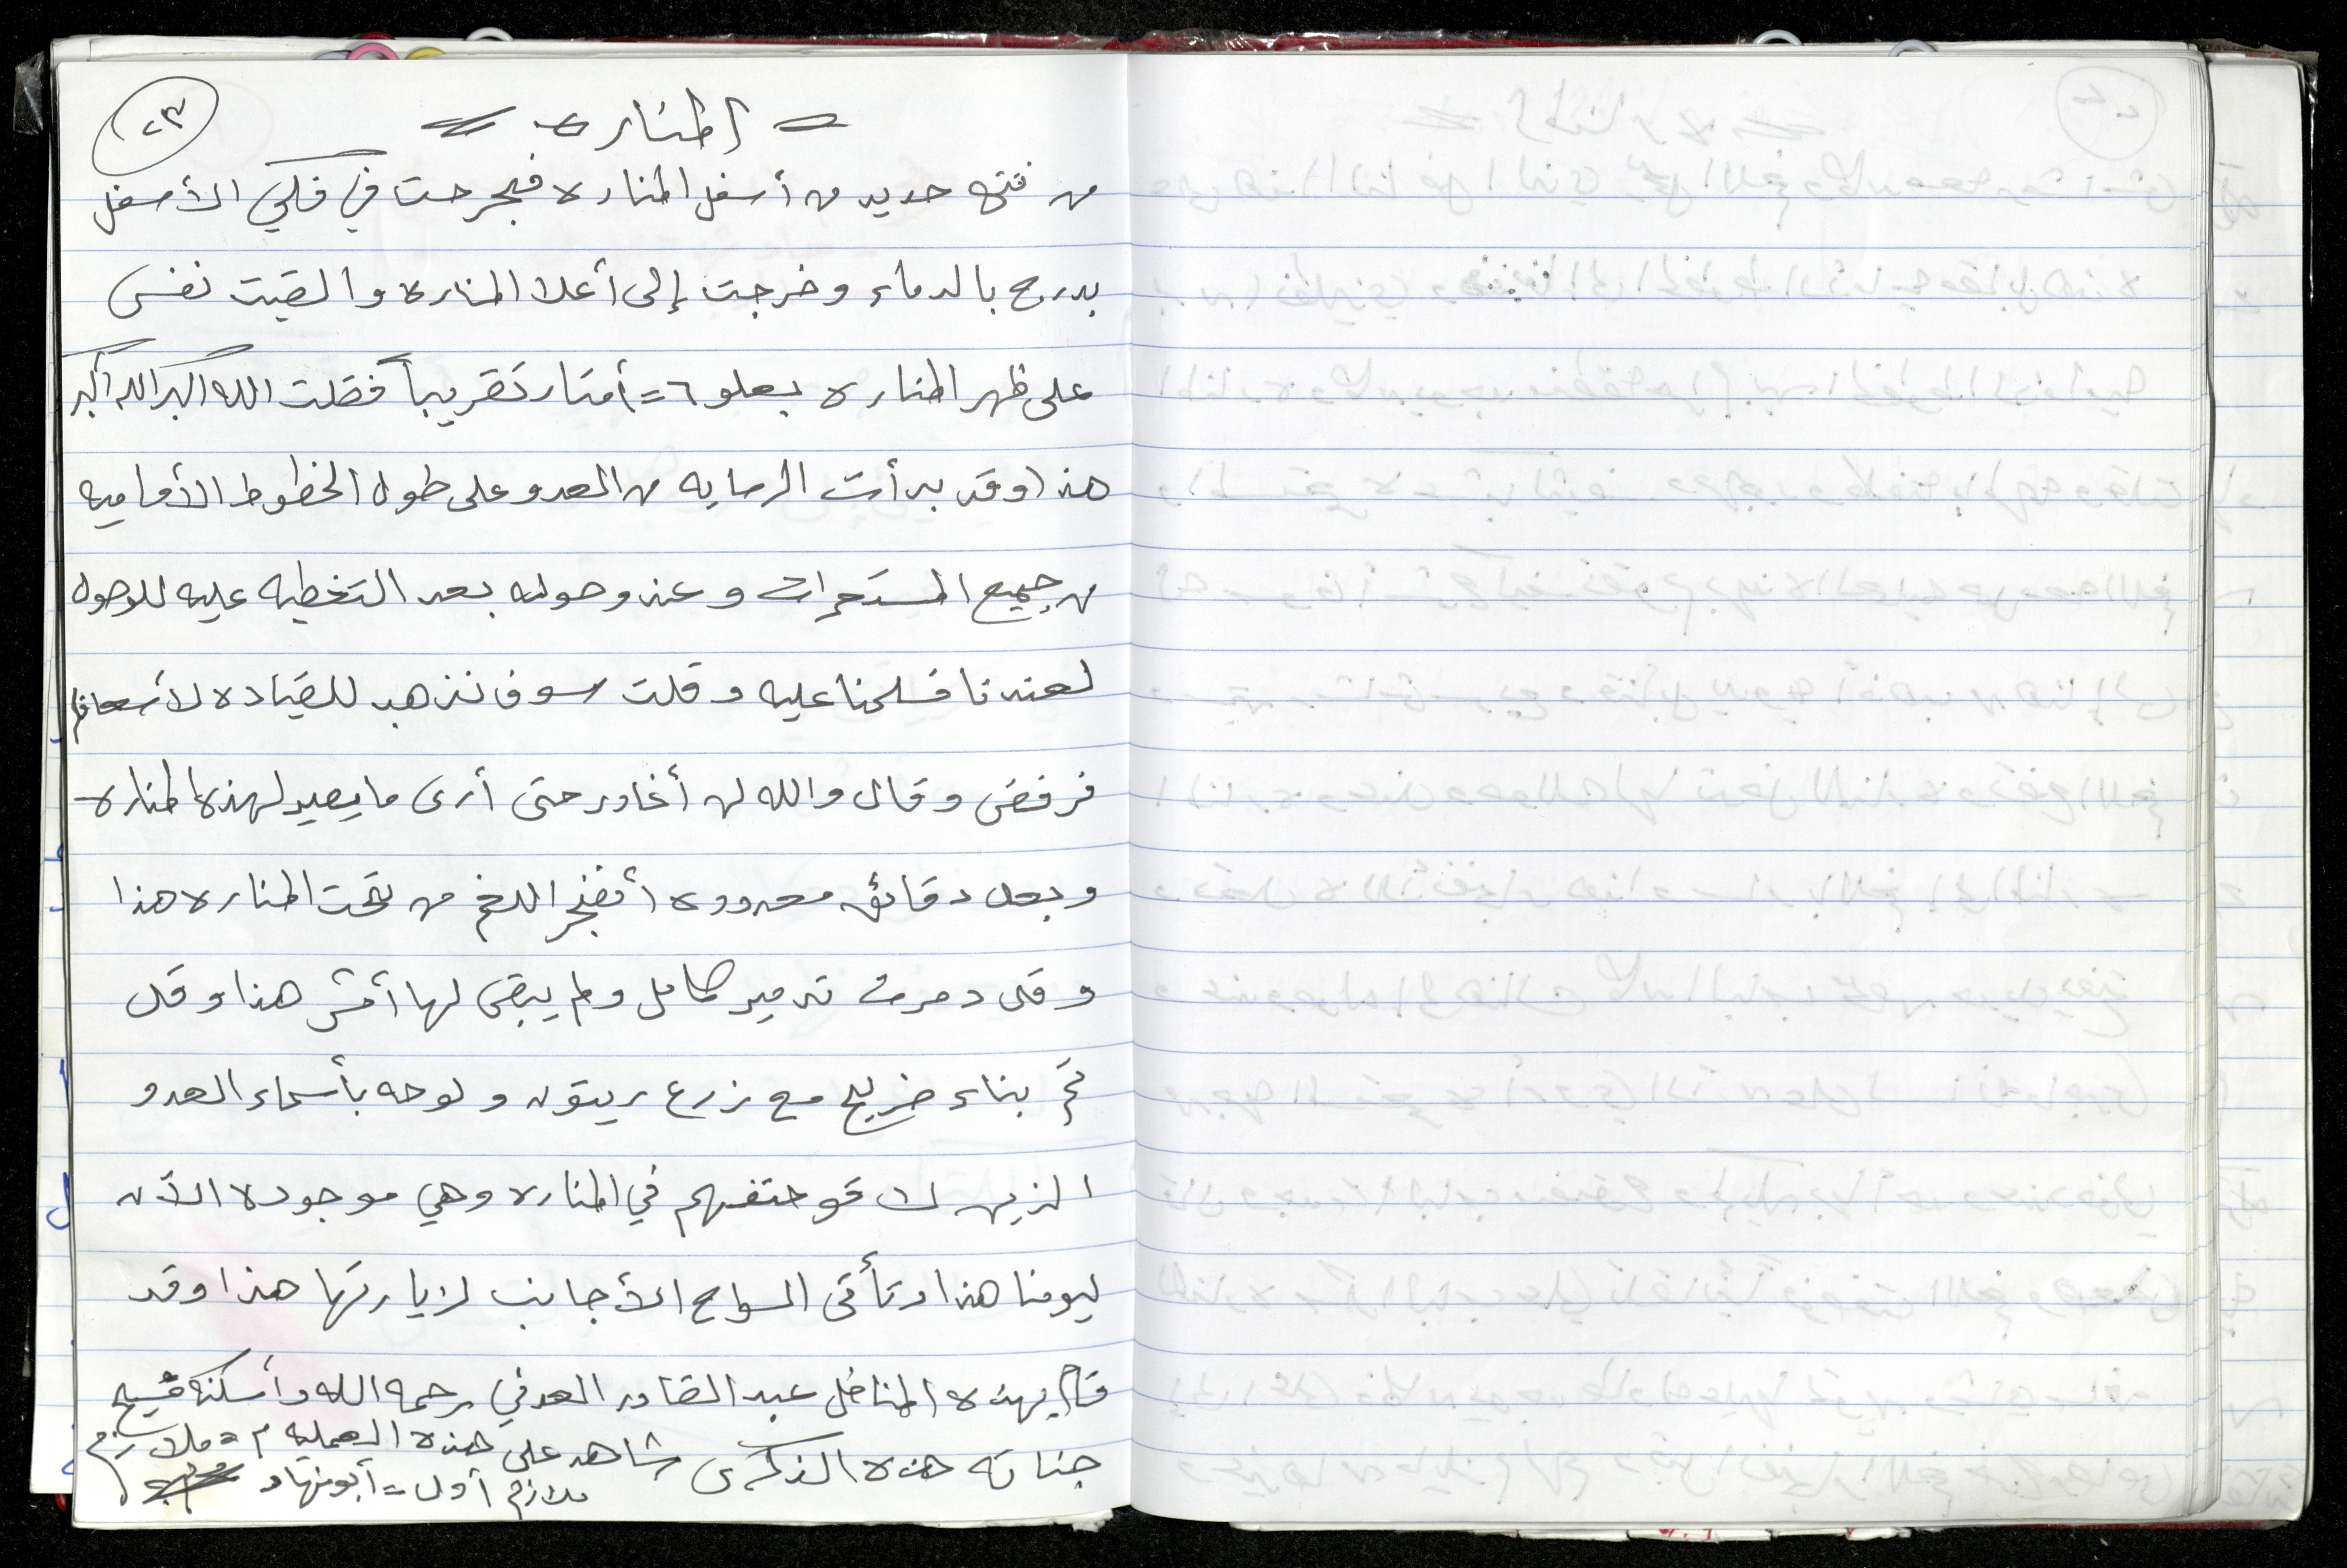 ٢٣
= المناره =
من فتحه حديد من أسفل المناره فجرحت في فكي الأسفل
بدرج بالدماء وخرجت إلى أعلا المناره والقيت نفسى
على ظهر المناره بعلو ٦ = أمتار تقريباً فقلت الله اكبر الله أكبر
هذا وقد بدأت الرمايه من العدو على طول الخطوط الأماميه
من جميع المستعمرات وعند وصوله بعد التغطيه عليه للوصول
لعندنا فسلمنا عليه وقلت سوف نذهب للقياده لأسعافك
فرفض وقال والله لن أغادر حتى أرى ما يصير لهذه المناره
وبعد دقائق معدوده أنفجر اللغم من تحت المناره هذا
وقد دمرت تدمير كامل ولم يبقى لها أثر هذا وقد
تم بناء ضريح مع زرع زيتون ولوحه بأسماء العدو
الذين لاقو حتفهم في المناره وهي موجوده الآن
ليومنا هذا وتأتى السواح الأجانب لزيارتها هذا وقد
قام بهذه المناضل عبد القادر العدني رحمه الله وأسكنه فسيح
جناته هذه الذكرى شاهد على هذه العمليه م = ملازم
ملازم أول = أبو نهاد